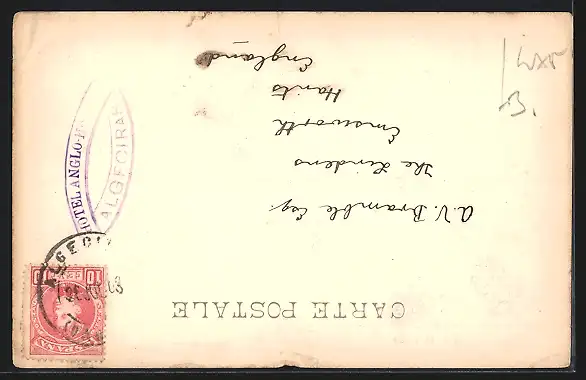 CARTE POSTALE
A. V. Bramble Esq.
The Lindens
Emsworth
Hants
England
HOTEL ANGLO-H
ALGECIRAS
ALGECI
10
10
B.